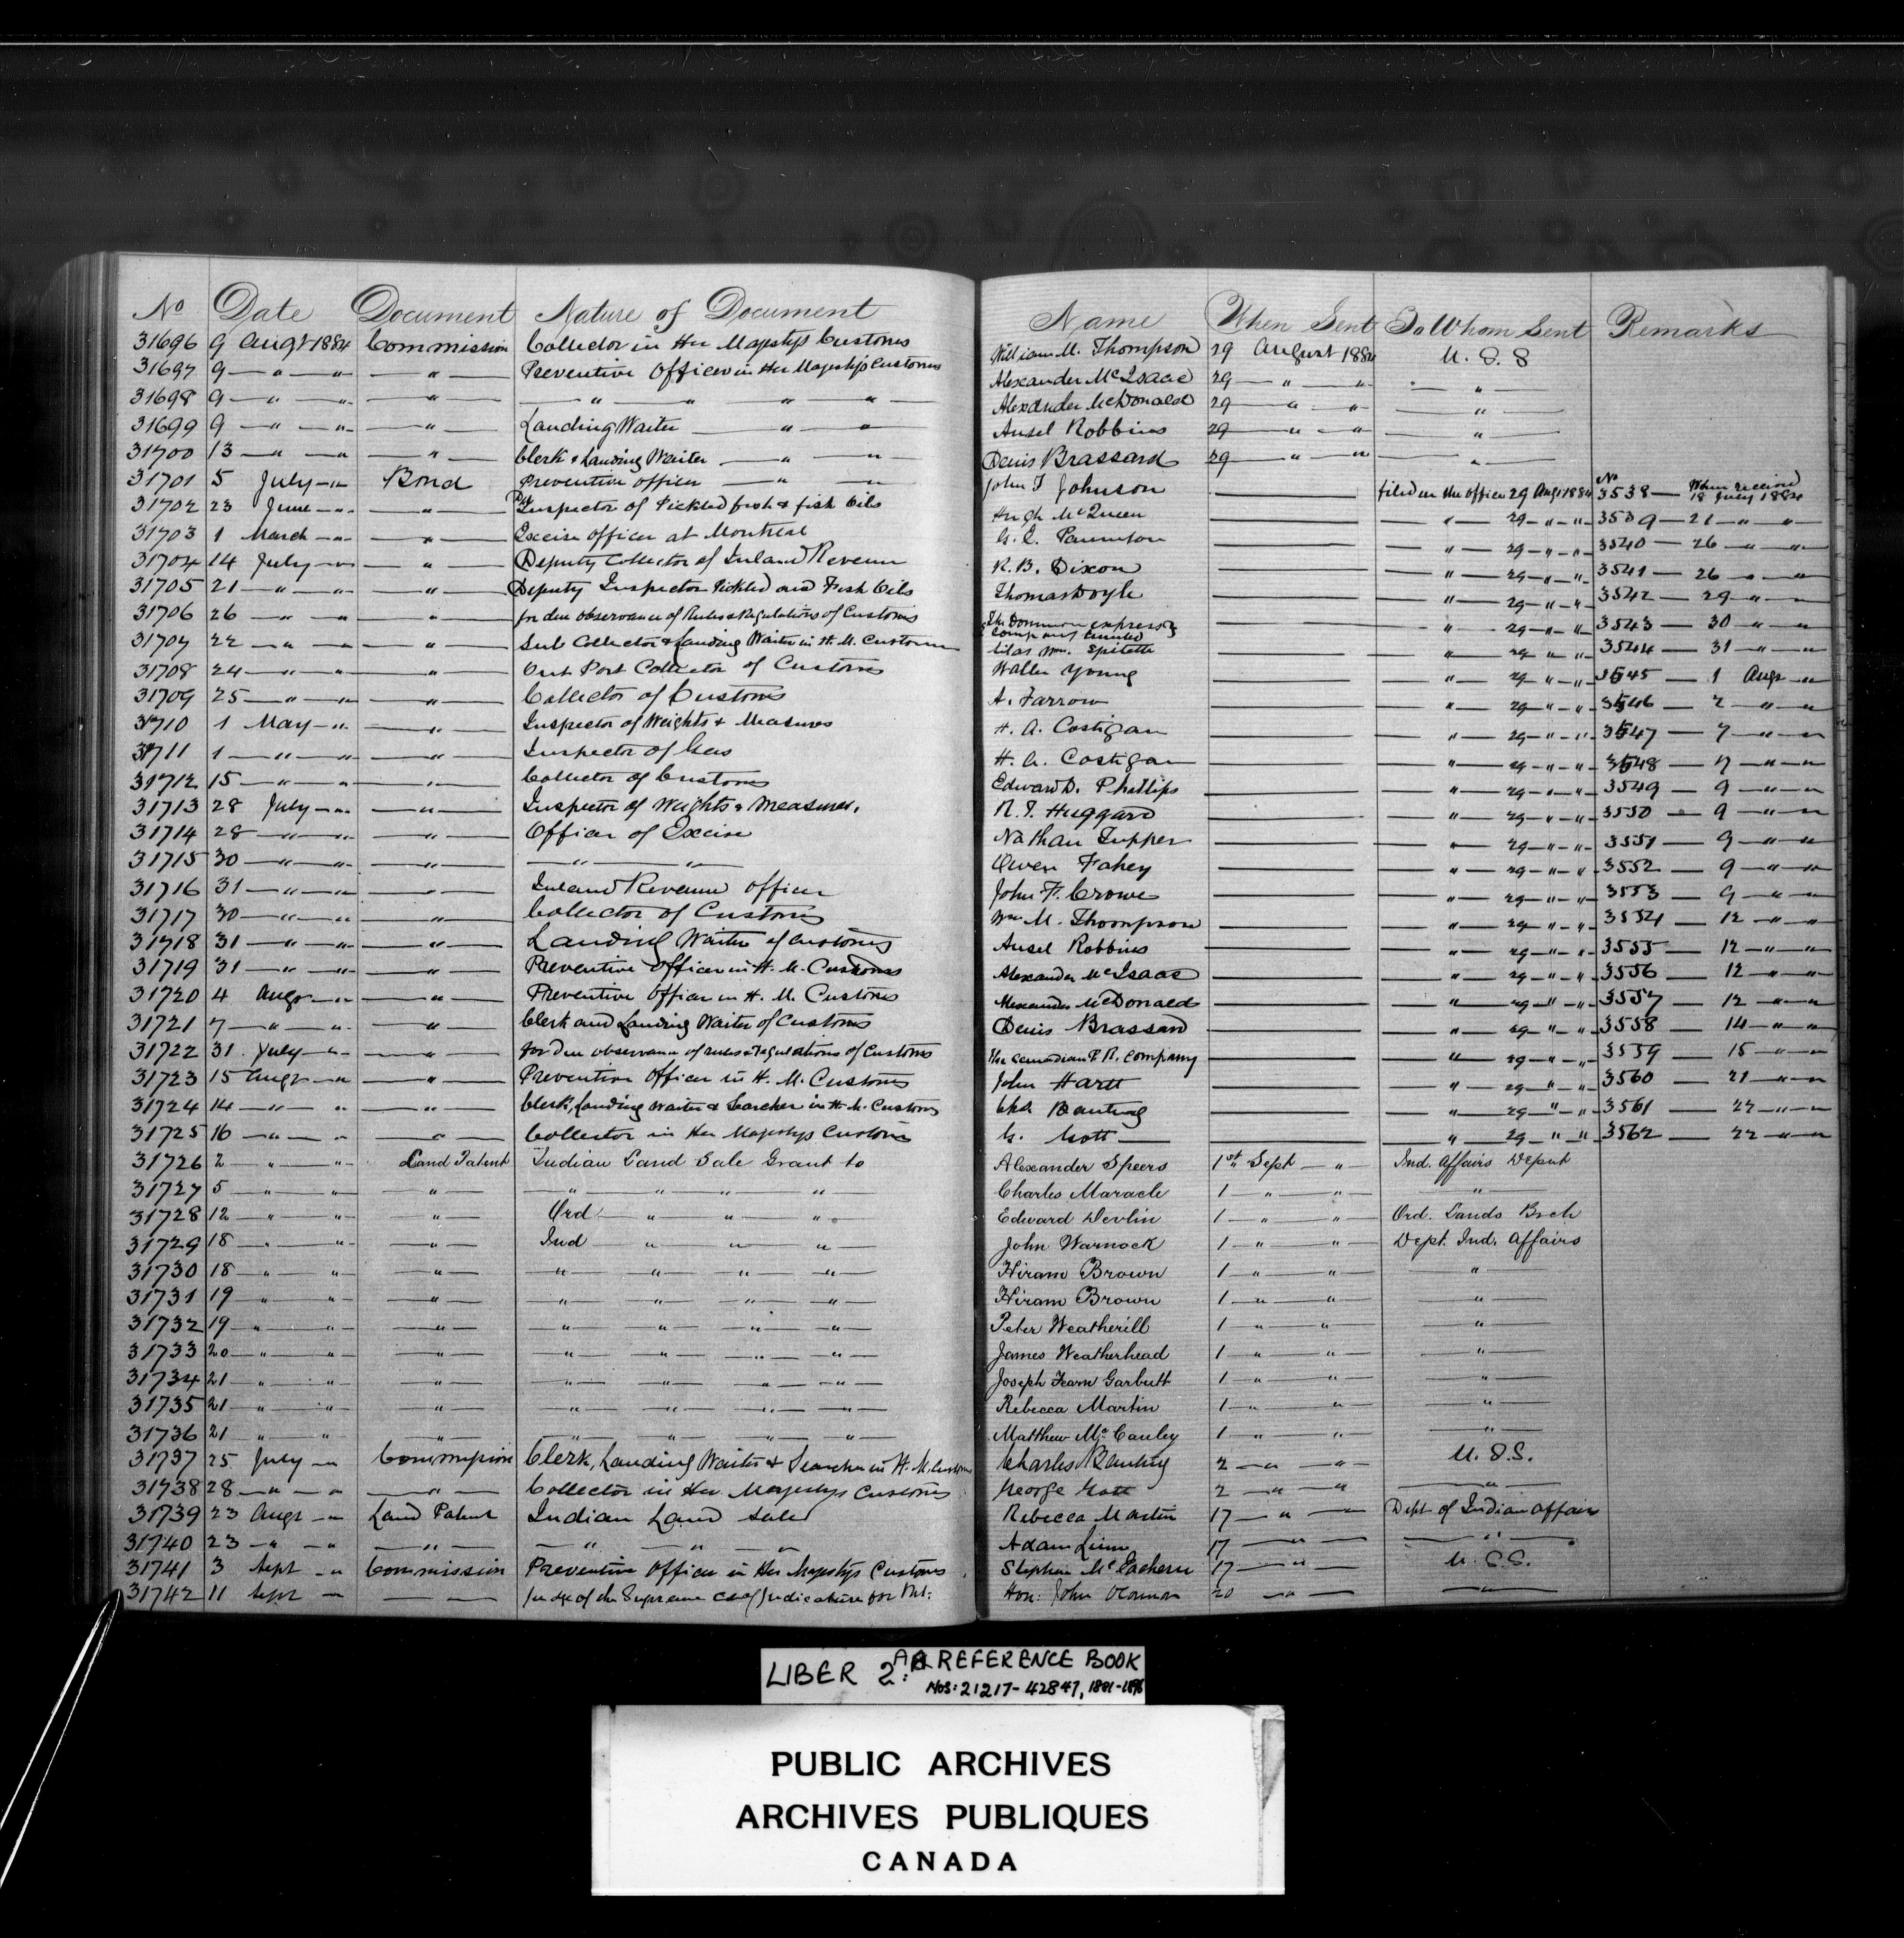 No Date Document Nature of Document Name When Sent To Whom Sent Remarks
31696 9 Augt 1884 Commission Collector in Her Majestys Customs William M. Thompson 29 August 1884 U. S. S
31697 9 — " — " — " — Preventive Officer in Her Majestys Customs Alexander McIsaac 29 — " — " — "
31698 9 — " — " — " — " " " " Alexander McDonald 29 — " — " — "
31699 9 — " — " — " — Landing Waiter — " — " Ansel Robbins 29 — " — " — "
31700 13 — " — " — " — Clerk & Landing Waiter — " — " Denis Brassard 29 — " — " — "
31701 5 July — " Bond Preventive officer — " — " John T Johnson — filed in the office 29 Augt 1884 No 3538 — When received 18 July 1884
31702 23 June — " — " — Dy Inspector of Pickled fish & fish Oils Hugh McQueen — " — 29 — " — " 3539 — 21 — " — "
31703 1 March — " — " — Excise officer at Montreal — " — 29 — " — " 3540 — 26 — " — "
31704 14 July — " — " — Deputy Collector of Inland Revenue R. B. Dixon — " — 29 — " — " 3541 — 26 — " — "
31705 21 — " — " — " — Deputy Inspector Pickled and Fish Oils Thomas Doyle — " — 29 — " — " 3542 — 29 — " — "
31706 26 " — " — " — for due observance of Rules & Regulations of Customs The Dominion express Company limited — " — 29 — " — " 3543 — 30 — " — "
31707 22 — " — " — " — Sub Collector & Landing Waiter in H. M. Customs Wm. — " — 29 — " — " 3544 — 31 — " — "
31708 24 — " — " — " — Out Port Collector of Customs Walter Young — " — 29 — " — " 3545 — 1 Augt — "
31709 25 — " — " — " — Collector of Customs A. Farrow — " — 29 — " — " 3546 — 2 — " — "
31710 1 May — " — " — Inspector of Weights & Measures H. A. Costigan — " — 29 — " — " 3547 — 7 — " — "
31711 1 — " — " — " — Inspector of Gas H. A. Costigan — " — 29 — " — " 3548 — 7 — " — "
31712 15 — " — " — " — Collector of Customs Edward D. Phillips — " — 29 — " — " 3549 — 9 — " — "
31713 28 July — " — " — Inspector of Weights & Measures. R. T. Huggard — " — 29 — " — " 3550 — 9 — " — "
31714 28 — " — " — " — Officer of Excise Nathan Tupper — " — 29 — " — " 3551 — 9 — " — "
31715 30 — " — " — " — " — " Owen Fahey — " — 29 — " — " 3552 — 9 — " — "
31716 31 — " — " — " — Inland Revenue officer John F. Crowe — " — 29 — " — " 3553 — 9 — " — "
31717 30 — " — " — " — Collector of Customs Wm M. Thompson — " — 29 — " — " 3554 — 12 — " — "
31718 31 — " — " — " — Landing Waiter of Customs Ansel Robbins — " — 29 — " — " 3555 — 12 — " — "
31719 31 — " — " — " — Preventive officer in H. M. Customs Alexander McIsaac — " — 29 — " — " 3556 — 12 — " — "
31720 4 Augt — " — " — Preventive Officer in H. M. Customs Alexander McDonald — " — 29 — " — " 3557 — 12 — " — "
31721 7 — " — " — " — Clerk and Landing Waiter of Customs Denis Brassard — " — 29 — " — " 3558 — 14 — " — "
31722 31 July — " — " — for due observance of rules & regulations of Customs The Canadian P. R. Company — " — 29 — " — " 3559 — 15 — " — "
31723 15 Augt — " — " — Preventive Officer in H. M. Customs John Hartt — " — 29 — " — " 3560 — 21 — " — "
31724 14 — " — " — " — Clerk, Landing Waiter & Searcher in H. M. Customs Chs. Banting — " — 29 — " — " 3561 — 22 — " — "
31725 16 — " — " — " — Collector in Her Majestys Customs G. Gott — " — 29 — " — " 3562 — 22 — " — "
31726 2 " — " Land Patent Indian Land Sale Grant to Alexander Speers 1st Sept — " Ind. Affairs Depmt
31727 5 " — " — " — " " " " Charles Maracle 1 — " — " — "
31728 12 " — " — " — Ord — " " " Edward Devlin 1 — " — " Ord. Lands Bch
31729 18 " — " — " — Ind " " " John Warnock 1 — " — " Dept. Ind. Affairs
31730 18 " — " — " — " " " " Hiram Brown 1 — " — " "
31731 19 " — " — " — " " " " Hiram Brown 1 — " — " "
31732 19 " — " — " — " " " " Peter Weatherill 1 — " — " "
31733 20 " — " — " — " " " " James Weatherhead 1 — " — " "
31734 21 " — " — " — " " " " Joseph Fearn Garbutt 1 — " — " "
31735 21 " — " — " — " " " " Rebecca Martin 1 — " — " "
31736 21 " — " — " — " " " " Matthew McCauley 1 — " — " "
31737 25 July — " Commission Clerk, Landing Waiter & Searcher in H. M. Customs Charles Banting 2 — " — " U. S. S.
31738 28 — " — " — " — Collector in Her Majestys Customs George Gott 2 — " — " "
31739 23 Augt — " Land Patent Indian Land Sale Rebecca Martin 17 — " — Dept of Indian Affairs
31740 23 — " — " — " — " " " Adam Linn 17 — " — "
31741 3 Sept — " Commission Preventive Officer in Her Majestys Customs Stephen McEachern 17 — " — U. S. S.
31742 11 Sept — Judge of the Supreme Judicature for Ont: Hon: John OConnor 20 — " — "
LIBER 2: REFERENCE BOOK
NOS: 21217-42847, 1881-1896
PUBLIC ARCHIVES
ARCHIVES PUBLIQUES
CANADA